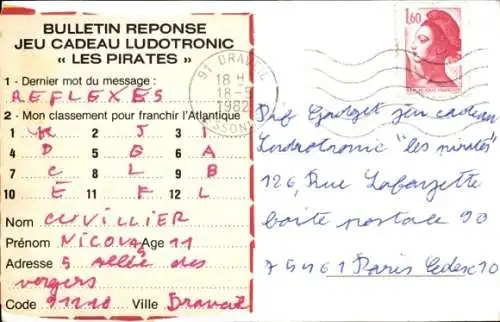 BULLETIN REPONSE
JEU CADEAU LUDOTRONIC
« LES PIRATES »
1 - Dernier mot du message :
REFLEXES
2 - Mon classement pour franchir l'Atlantique
1 K 2 J 3 I
4 D 5 G 6 A
7 C 8 L 9 B
10 E 11 F 12 L
Nom CUVILLIER
Prénom NICOLAS Age 11
Adresse 5 allée des
vergers
Code 91210 Ville Draveil
91 DRAVEIL
18 H
18-9
1982
ESSONNE
1,60
Pif Gadget jeu cadeau
Ludrotronic "les pirates"
126, Rue Lafayette
boite postale 90
75461 Paris Cedex 10